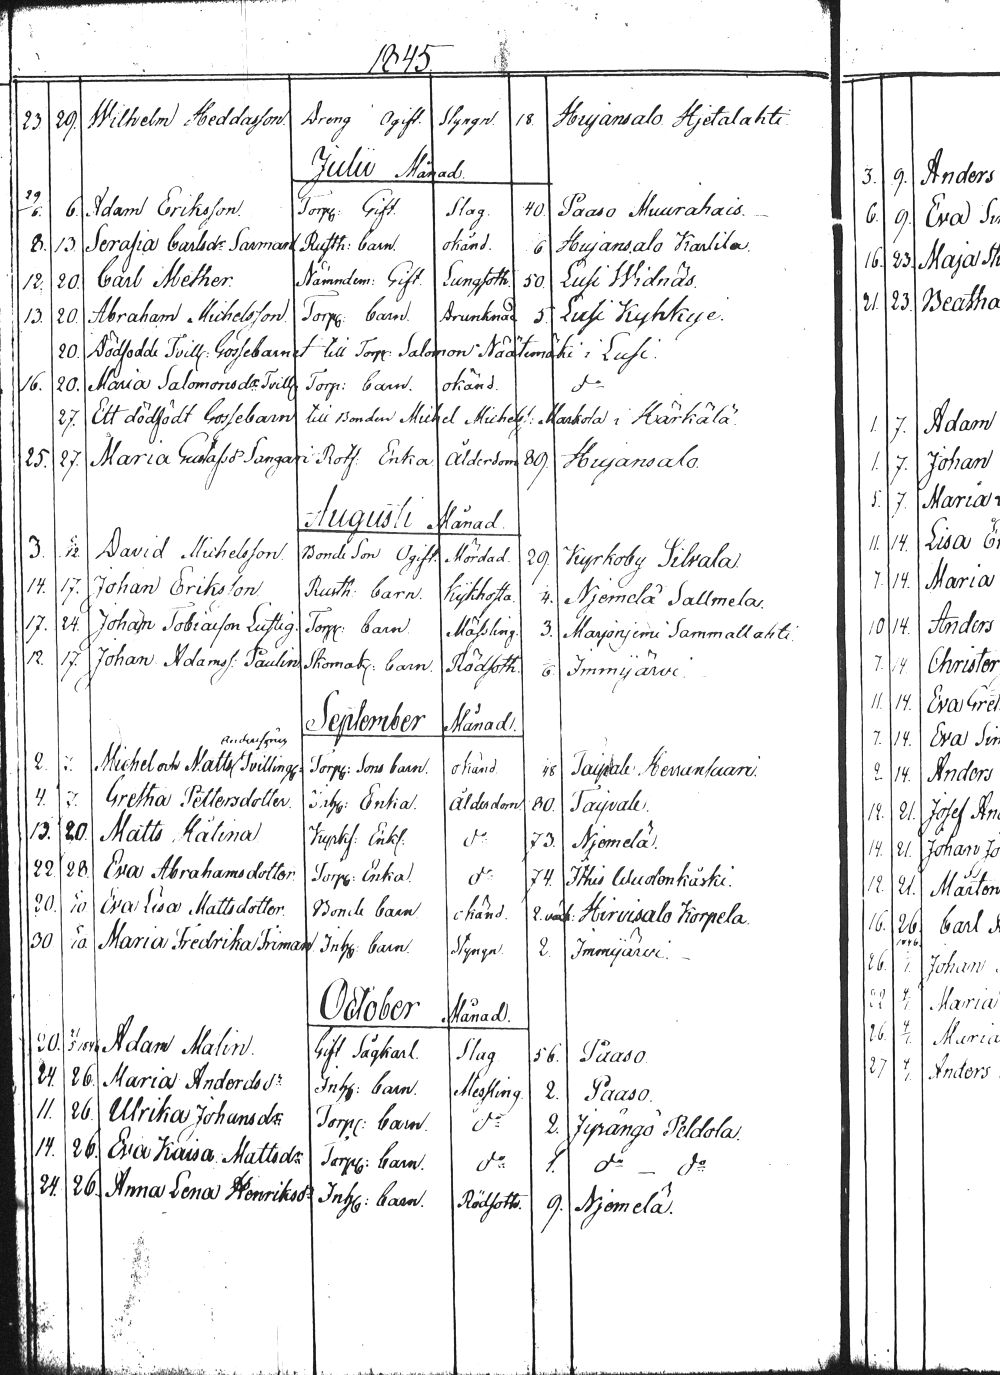 1845.
23. 29. Wilhelm Heddasson. Dreng Ogift. Styngn. 18. Hujansalo Hjetalahti.
Julii Månad.
29/6. 6. Adam Eriksson. Torp: Gift. Slag. 40. Paaso Muurahais.
8. 13 Serafia Carlsdr Sarman Rusth: barn. okänd. 6 Hujansalo Karlila.
12. 20. Carl Mether. Nämndem: Gift. Lungsoth. 50. Lusi Widnäs.
13. 20. Abraham Michelsson. Torp: barn. Drunknad 5. Lusi Kyhkye.
20. Dödfödde Tvill: Gossebarnet till Torp: Salomon Näätimäki i Lusi.
16. 20. Maria Salomonsdr Tvill: Torp: barn. okänd. do
27. Ett dödfödt Gossebarn till Bonden Michel Michelss: Markola i Härkälä.
25. 27. Maria Gustafsdr Sangari Rotf. Enka Ålderdom 89. Hujansalo.
Augusti Månad.
3. David Michelsson. Bonde Son Ogift. Mördad. 29. Kyrkoby Silvala.
14. 17. Johan Eriksson Rusth: barn. Kykhosta. 4. Njemelä Sallmela.
17. 24. Johan Tobiasson Lustig. Torp: barn. Mässling. 3. Marjonjemi Sammallahti.
12. 17. Johan Adamss: Paulin Skomak: barn. Rödsoth. 6. Immijärvi.
September Månad.
Anderssöner
2. 7. Michel och Matts Tvilling: Torp: Sons barn. okänd. 48 Taipale Herransaari.
4. 7. Gretha Pettersdotter. Inh: Enka. Ålderdom 80. Taipale.
13. 20. Matts Kälina Kyrkf: Enkl. do 73. Njemelä.
22. 28. Eva Abrahamsdotter Torp: Enka. do 74. Ithis Wuolenkoski.
20. 5/10 Eva Lisa Mattsdotter. Bonde barn okänd. 2. Hirvisalo Korpela.
30 5/10. Maria Fredrika Friman Inh: barn. Styngn 2. Immijärvi.
October Månad.
20. Adam Malin. Gift Sågkarl. Slag 56. Paaso.
24. 26. Maria Andersdr Inh: barn. Messling. 2. Paaso.
11. 26. Ulrika Johansdr Torp: barn. do 2. Jyrängö Peldola.
14. 26. Eva Kaisa Mattsdr Torp: barn. do 1. do — do
24. 26. Anna Lena Henriksdr Inh: barn. Rödsoth. 9. Njemelä.
3. 9. Anders
6. 9. Eva
16. 23. Maja
21. 23. Beatha
1. 7. Adam
1. 7. Johan
5. 7. Maria
11. 14. Lisa
7. 14. Maria
10 14. Anders
7. 14. Christer
11. 14. Eva Gret
7. 14. Eva
2. 14. Anders
12. 21. Josef
14. 21. Johan
12. 21. Mårten
16. 26. Carl
26. Johan
22 4/1. Maria
26. 4/1. Maria
27 4/1. Anders